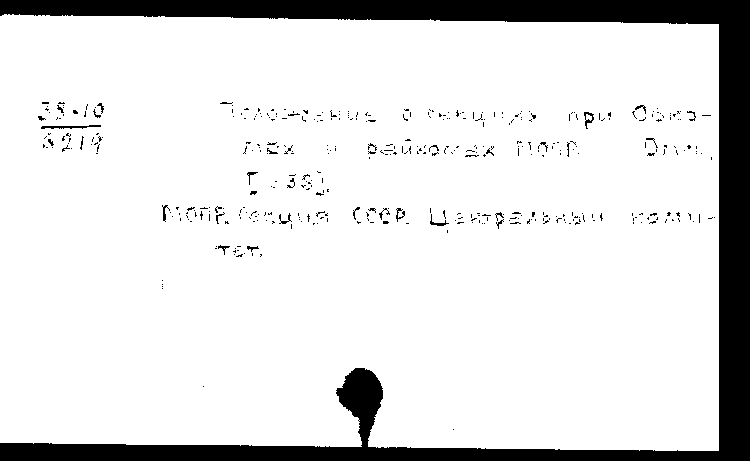 38-10
8219
Положение о секциях при Обко-
мах и райкомах МОПР. Отп.
[38].
МОПР. Секция СССР. Центральный коми-
тет.